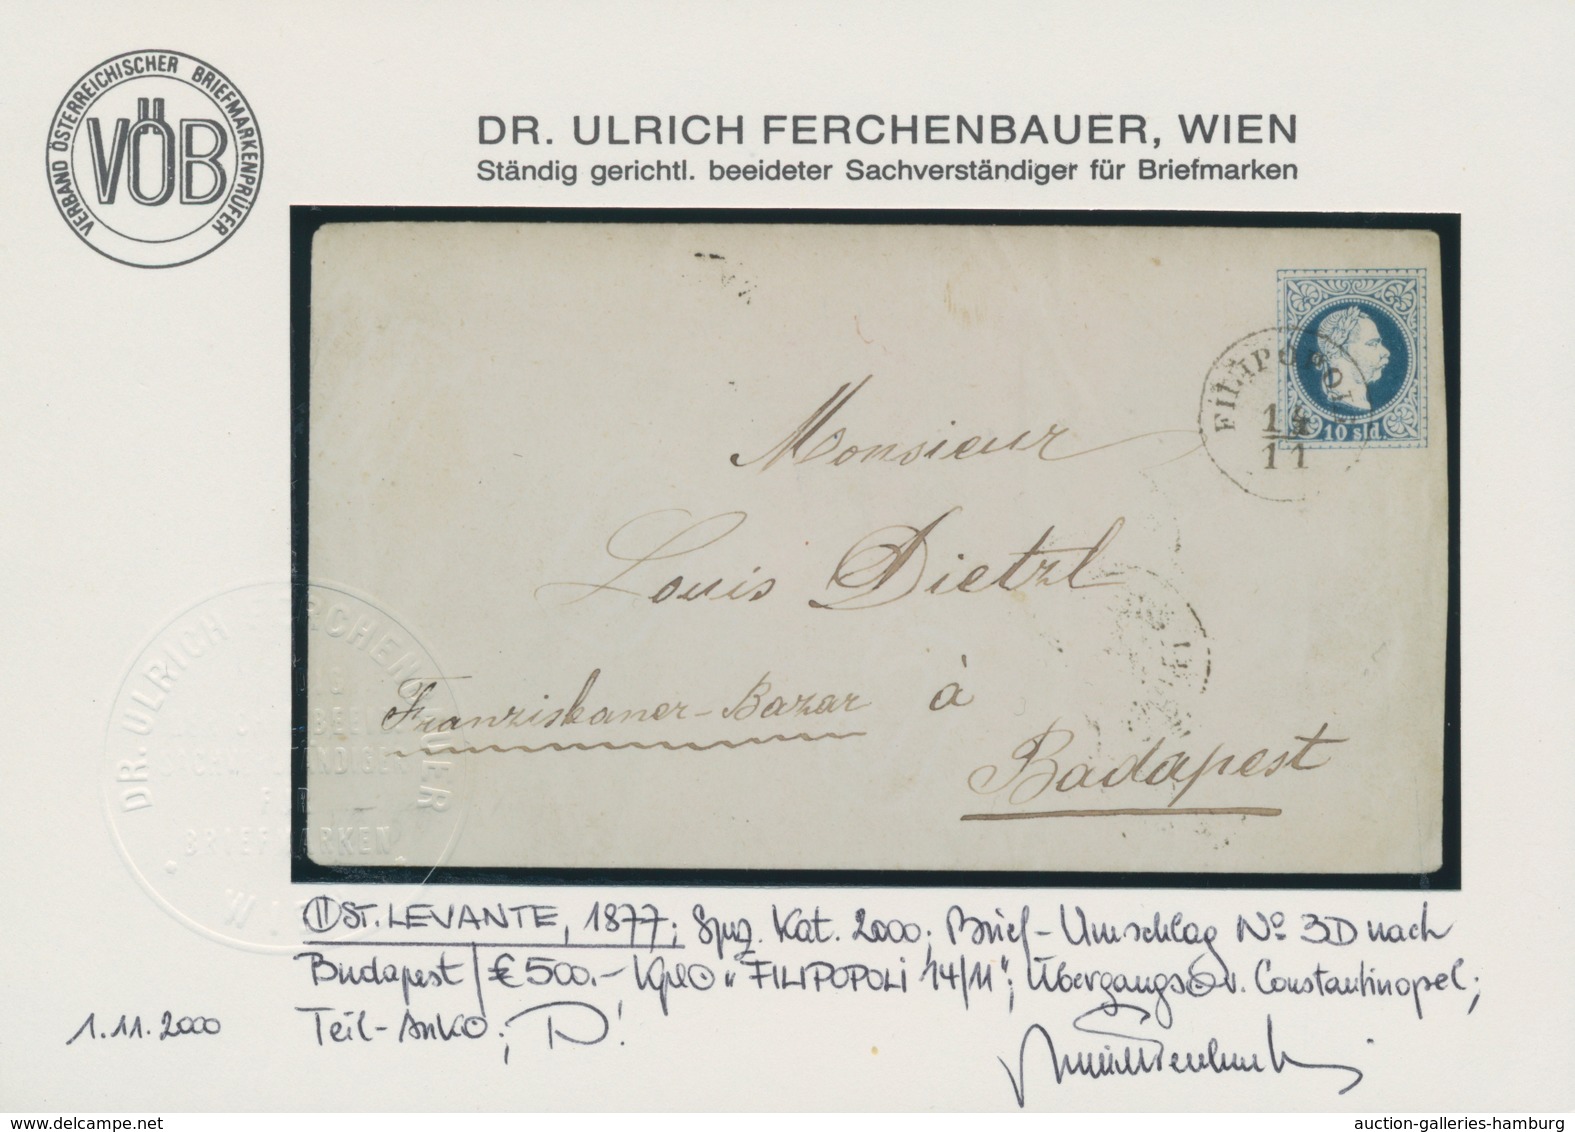 VERBAND ÖSTERREICHISCHER BRIEFMARKENPRÜFER
VÖB
DR. ULRICH FERCHENBAUER, WIEN
Ständig gerichtl. beeideter Sachverständiger für Briefmarken
FILIPOPOLI
14
11
10 sld.
Monsieur
Louis Dietzl
Franziskaner-Bazar à
Budapest
DR. ULRICH FERCHENBAUER
BRIEFMARKEN
WIEN
ST. LEVANTE, 1877; Spez. Kat. 2000; Brief-Umschlag No 3D nach
Budapest / € 500.- "FILIPOPOLI 14/11"; v. Constantinopel;
1.11.2000
Teil-Ank
auction-galleries-hamburg